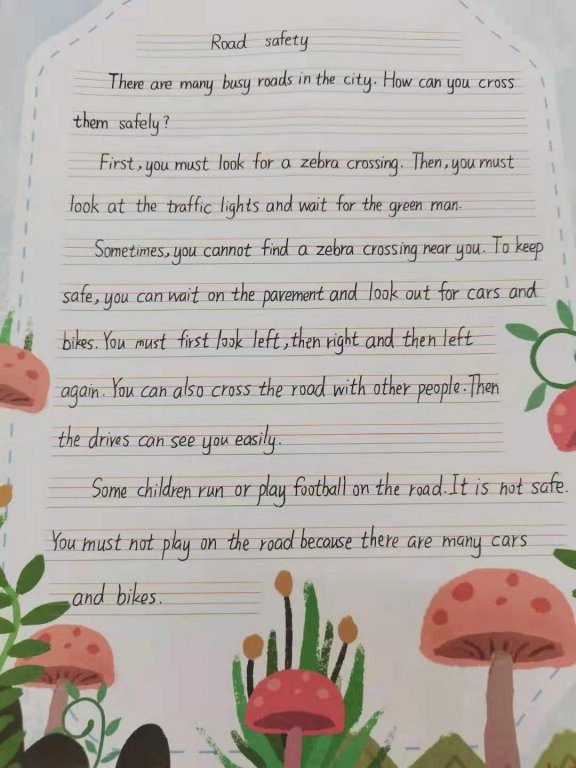 Road safety
There are many busy roads in the city. How can you cross
them safely?
First, you must look for a zebra crossing. Then, you must
look at the traffic lights and wait for the green man.
Sometimes, you cannot find a zebra crossing near you. To keep
safe, you can wait on the pavement and look out for cars and
bikes. You must first look left, then right and then left
again. You can also cross the road with other people. Then
the drives can see you easily.
Some children run or play football on the road. It is not safe.
You must not play on the road because there are many cars
and bikes.